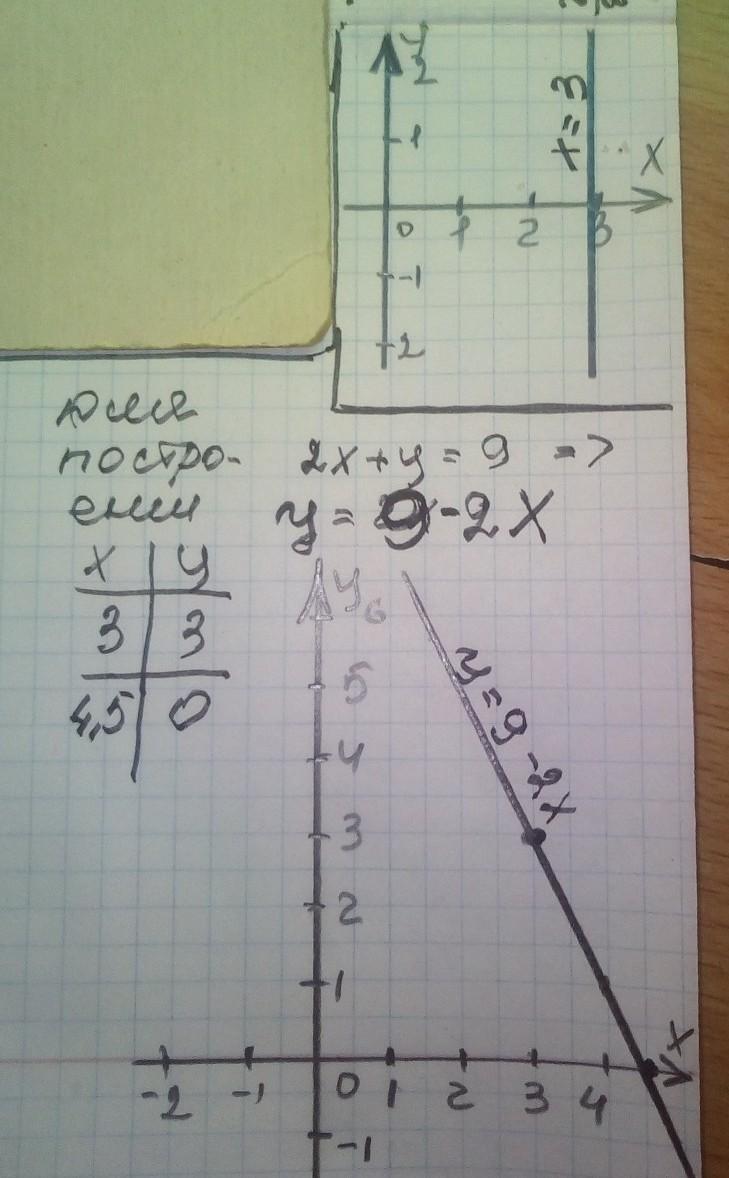 y
2
1
x = 3
x
0 1 2 3
-1
2
для
постро-
ении
2x+y = 9 =>
y = 9-2x
x y
3 3
4,5 0
y
6
5
4
3
2
1
y = 9 -2x
x
-2 -1 0 1 2 3 4
-1